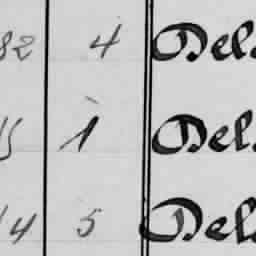 82 4 Del
5 1 Del.
14 5 Del